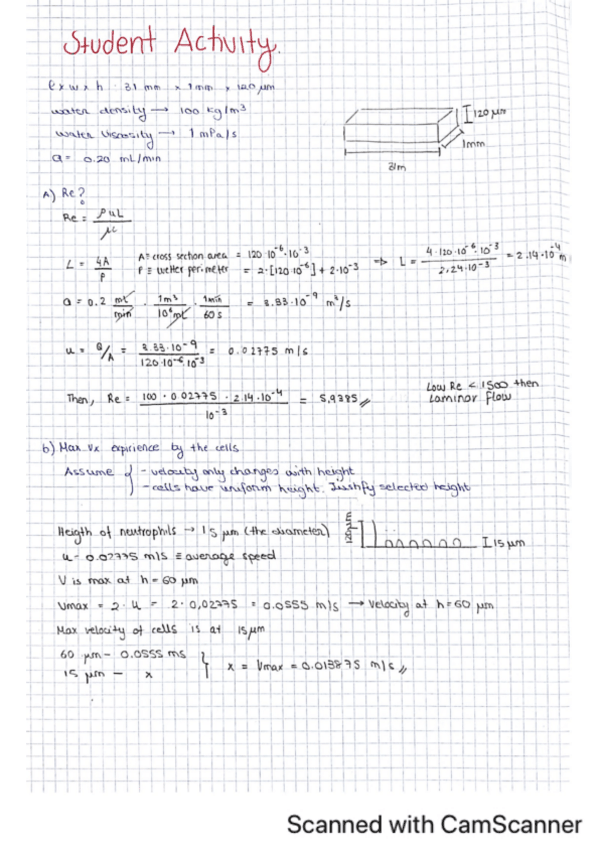 Student Activity.
l x w x h : 31 mm x 1 mm x 120 µm
water density → 100 kg/m³
water viscosity → 1 mPa/s
Q = 0.20 mL/min
120 µm
1mm
31m
A) Re?
Re = ρuL/µ
L = 4A/P
A ≡ cross section area = 120·10⁻⁶·10⁻³
P ≡ wetter perimeter = 2·[120·10⁻⁶] + 2·10⁻³
⇒ L = 4·120·10⁻⁶·10⁻³ / 2.24·10⁻³ = 2.14·10⁻⁴ m
Q = 0.2 mL/min · 1m³/10⁶mL · 1min/60s = 3.33·10⁻⁹ m³/s
u = Q/A = 3.33·10⁻⁹ / 120·10⁻⁶·10⁻³ = 0.02775 m/s
Then, Re = 100 · 0.02775 · 2.14·10⁻⁴ / 10⁻³ = 5,9385
Low Re < 1500 then
Laminar flow
b) Max Vx expirience by the cells
Assume { - velocity only changes with height
- cells have uniform height. Justify selected height
Heigth of neutrophils → 15 µm (the diameter)
120µm
15 µm
u = 0.02775 m/s ≡ average speed
V is max at h = 60 µm
Vmax = 2·u = 2·0,02775 = 0.0555 m/s → Velocity at h=60 µm
Max velocity of cells is at 15µm
60 µm - 0.0555 ms
15 µm - x
} x = Vmax = 0.013875 m/s
Scanned with CamScanner